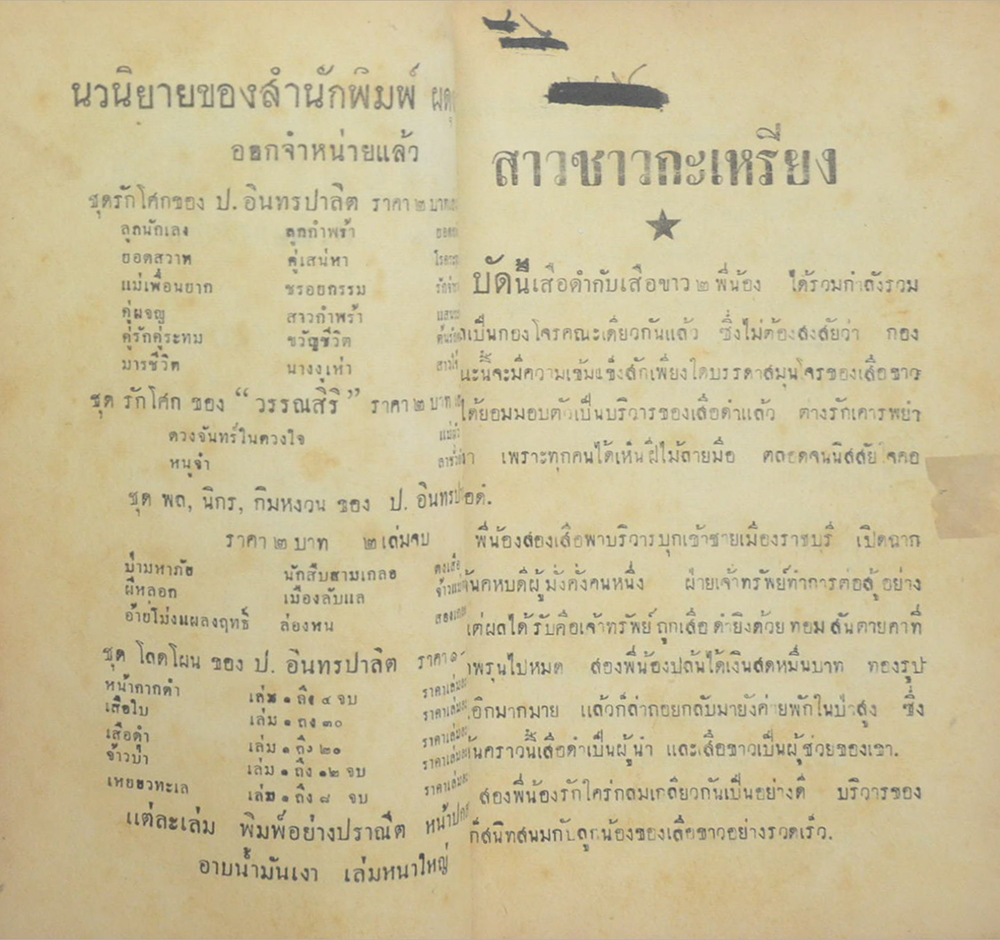 นวนิยายของสำนักพิมพ์
ออกจำหน่ายแล้ว
ชุดรักโศกของ ป. อินทรปาลิต ราคา ๒ บาท
ลูกนักเลง ลูกกำพร้า
ยอดสวาท คู่เสน่หา
แม่เพื่อนยาก ชรอยกรรม
คู่ผจญ สาวกำพร้า
คู่รักคู่ระทม ขวัญชีวิต
มารชีวิต นางงูเห่า
ชุด รักโศก ของ “ วรรณสิริ ” ราคา ๒ บาท
ดวงจันทร์ในดวงใจ
หนูจ๋า
ชุด พล, นิกร, กิมหงวน ของ ป. อินทรปา
ราคา ๒ บาท ๒ เล่มจบ
ป่ามหาภัย นักสืบสามเกลอ
ผีหลอก เมืองลับแล
อ้ายโม่งแผลงฤทธิ์ ล่องหน
ชุด โลดโผน ของ ป. อินทรปาลิต ราคา
หน้ากากดำ เล่ม ๑ ถึง ๔ จบ
เสือใบ เล่ม ๑ ถึง ๓๐
เสือดำ เล่ม ๑ ถึง ๒๐
จ้าวป่า เล่ม ๑ ถึง ๑๒ จบ
เหยี่ยวทะเล เล่ม ๑ ถึง ๘ จบ
แต่ละเล่ม พิมพ์อย่างปราณีต หน้าปก
อาบน้ำมันเงา เล่มหนาใหญ่
สาวชาวกะเหรี่ยง
บัดนี้เสือดำกับเสือขาว ๒ พี่น้อง ได้รวมกำลังรวม
เป็นกองโจรคณะเดียวกันแล้ว ซึ่งไม่ต้องสงสัยว่า กอง
นะนี้จะมีความเข้มแข็งสักเพียงใดบรรดาสมุนโจรของเสือขาว
ได้ยอมมอบตัวเป็นบริวารของเสือดำแล้ว ต่างรักเคารพยำ
เพราะทุกคนได้เห็นฝีไม้ลายมือ ตลอดจนนิสสัยใจคอ
พี่น้องสองเสือพาบริวารบุกเข้าชายเมืองราชบุรี เปิดฉาก
คหบดีผู้มั่งคั่งคนหนึ่ง ฝ่ายเจ้าทรัพย์ทำการต่อสู้อย่าง
แต่ผลได้รับคือเจ้าทรัพย์ถูกเสือดำยิงด้วยทอมสันตายคาที่
พรุนไปหมด สองพี่น้องปล้นได้เงินสดหมื่นบาท ทองรูป
อีกมากมาย แล้วก็ล่าถอยกลับมายังค่ายพักในป่าสูง ซึ่ง
คราวนี้เสือดำเป็นผู้นำ และเสือขาวเป็นผู้ช่วยของเขา.
สองพี่น้องรักใคร่กลมเกลียวกันเป็นอย่างดี บริวารของ
ก็สนิทสนมกับลูกน้องของเสือขาวอย่างรวดเร็ว.